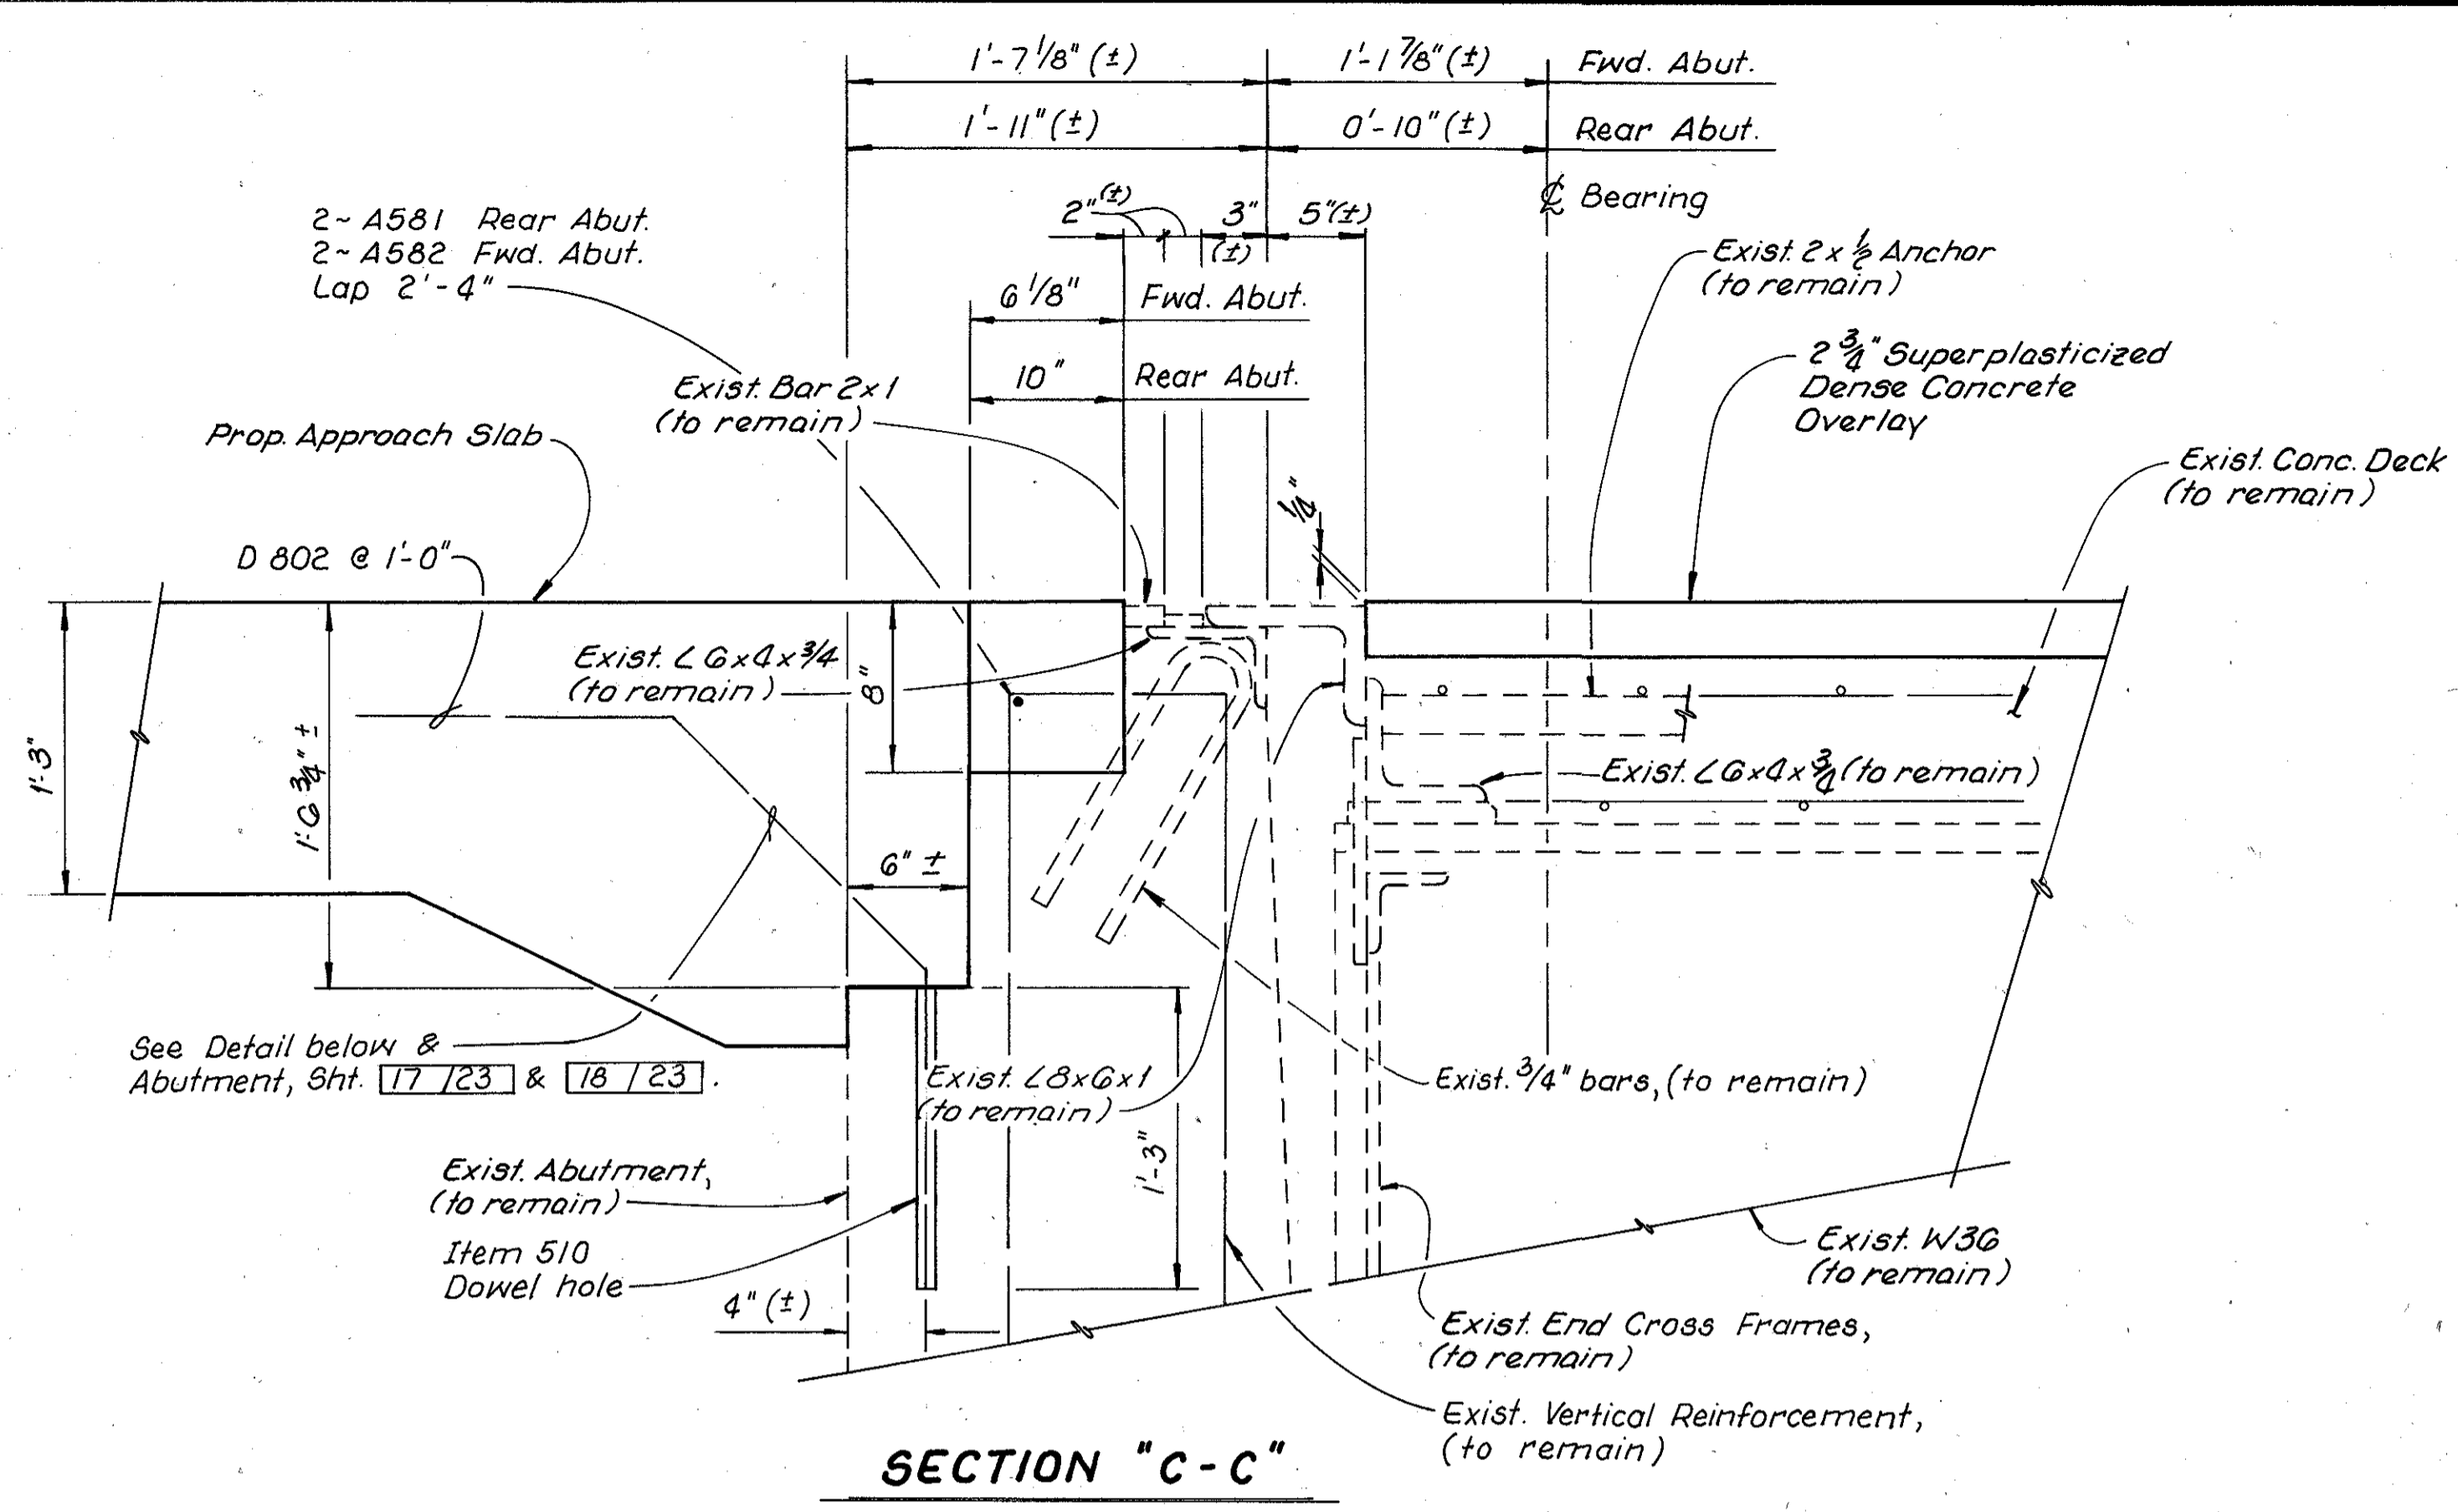 1'-7 1/8" (±)
1'-1 7/8" (±)
Fwd. Abut.
1'-11" (±)
0'-10" (±)
Rear Abut.
℄ Bearing
2~ A581 Rear Abut.
2~ A582 Fwd. Abut.
Lap 2'-4"
2" (±)
3"
(±)
5"(±)
Exist. 2 x 1/2 Anchor
(to remain)
6 1/8"
Fwd. Abut.
10"
Rear Abut.
2 3/4" Superplasticized
Dense Concrete
Overlay
Exist. Bar 2x1
(to remain)
Prop. Approach Slab
Exist. Conc. Deck
(to remain)
1/4"
D 802 @ 1'-0"
Exist. L 6x4x3/4
(to remain)
8"
1'-3"
1'-6 3/4" ±
Exist. L6x4x3/4 (to remain)
6" ±
See Detail below &
Abutment, Sht. 17 / 23 & 18 / 23.
Exist. L8x6x1
(to remain)
Exist. 3/4" bars, (to remain)
1'-3"
Exist. Abutment,
(to remain)
Item 510
Dowel hole
4" (±)
Exist. W36
(to remain)
Exist. End Cross Frames,
(to remain)
Exist. Vertical Reinforcement,
(to remain)
SECTION "C-C"